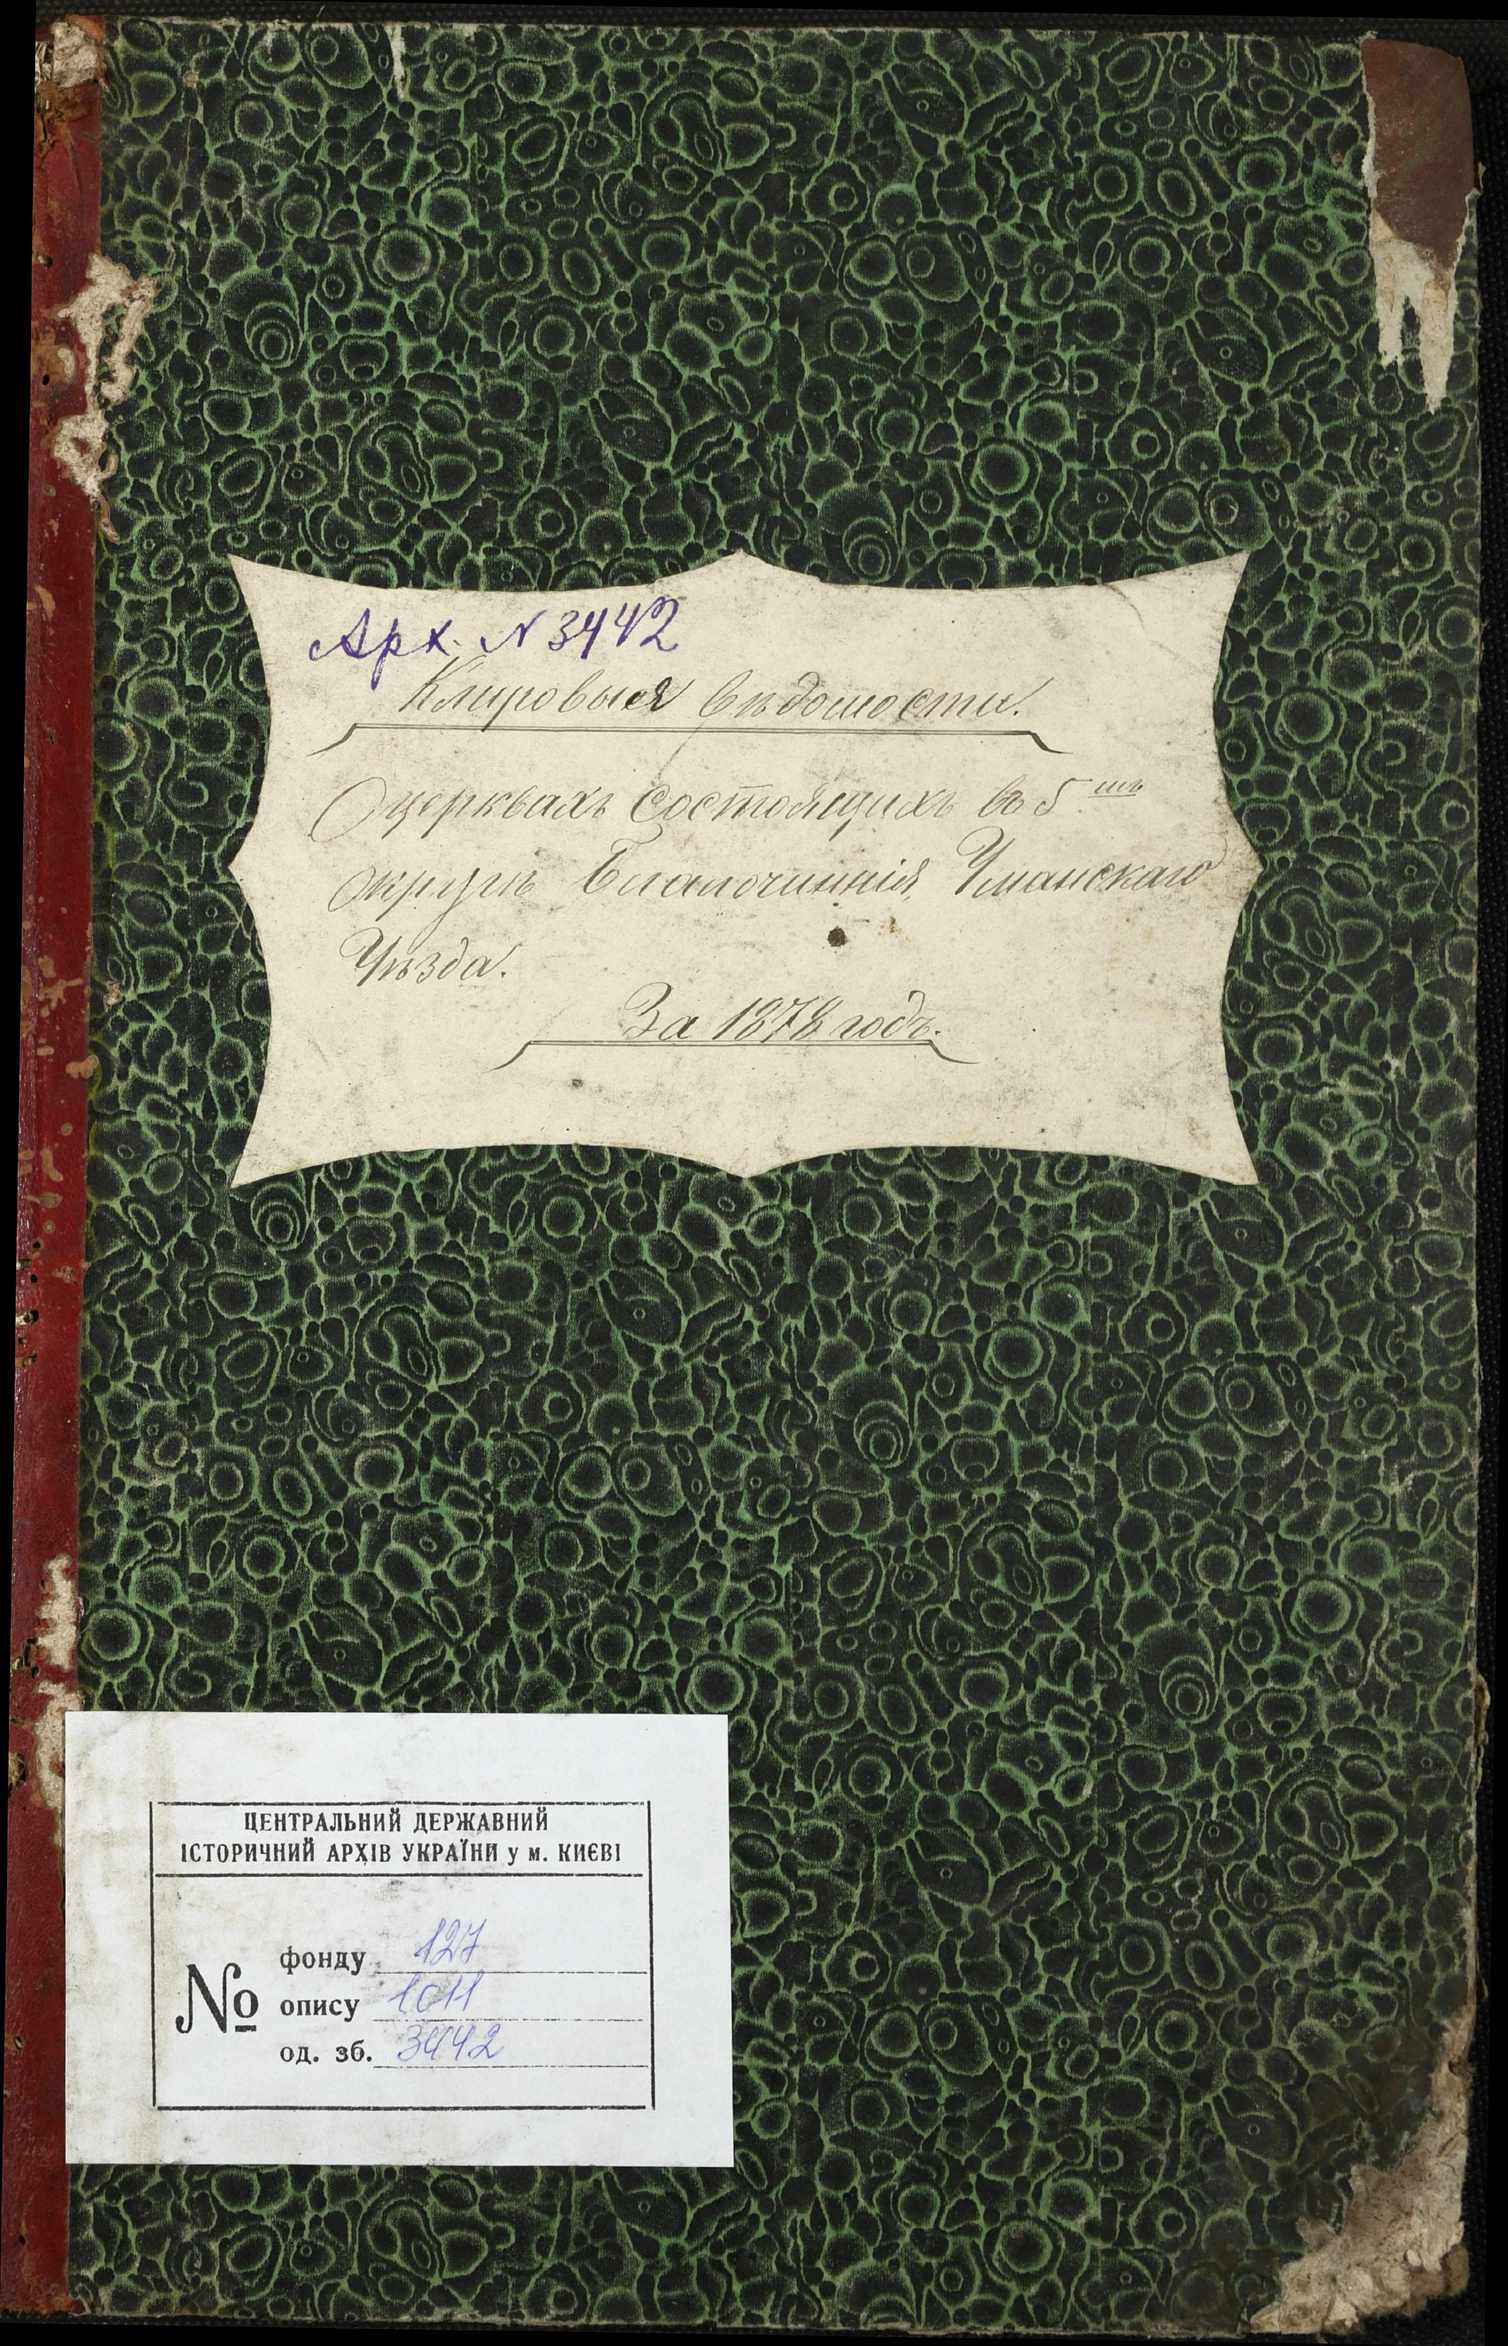 Арх. № 3442
Клировыя вѣдомости.
О церквахъ состоящихъ въ 5 мъ
округѣ Благочиннія, Уманскаго
Уѣзда.
За 1878 годъ.
ЦЕНТРАЛЬНИЙ ДЕРЖАВНИЙ
ІСТОРИЧНИЙ АРХІВ УКРАЇНИ у м. КИЄВІ
№
фонду 127
опису 1011
од. зб. 3442